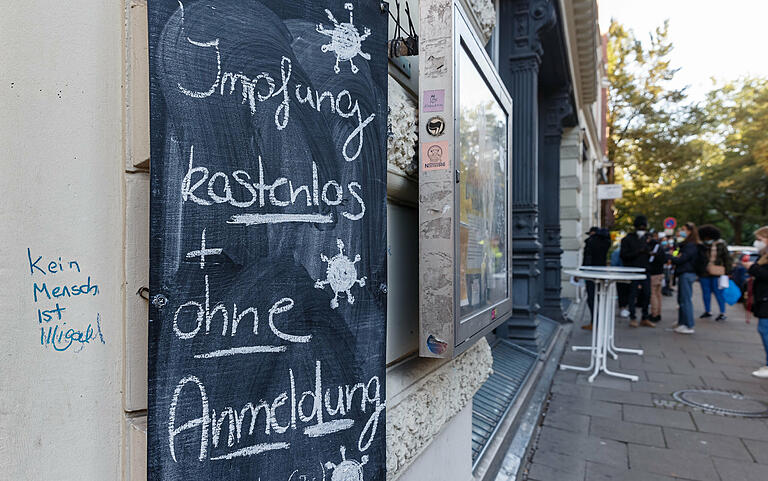 Impfung
kostenlos
+
ohne
Anmeldung
Kein
Mensch
ist
illegal